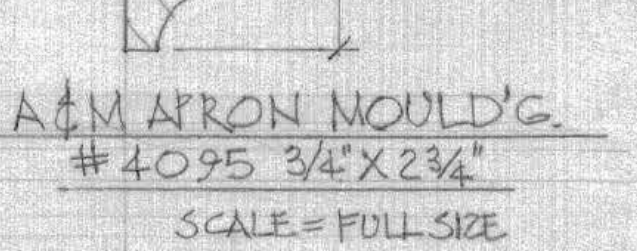 A&M APRON MOULD'G.
#4095 3/4" X 2 3/4"
SCALE = FULL SIZE